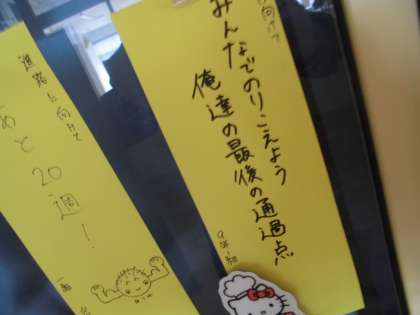 に向けて
みんなでのりこえよう
俺達の最後の通過点
進路に向けて
あと20週！